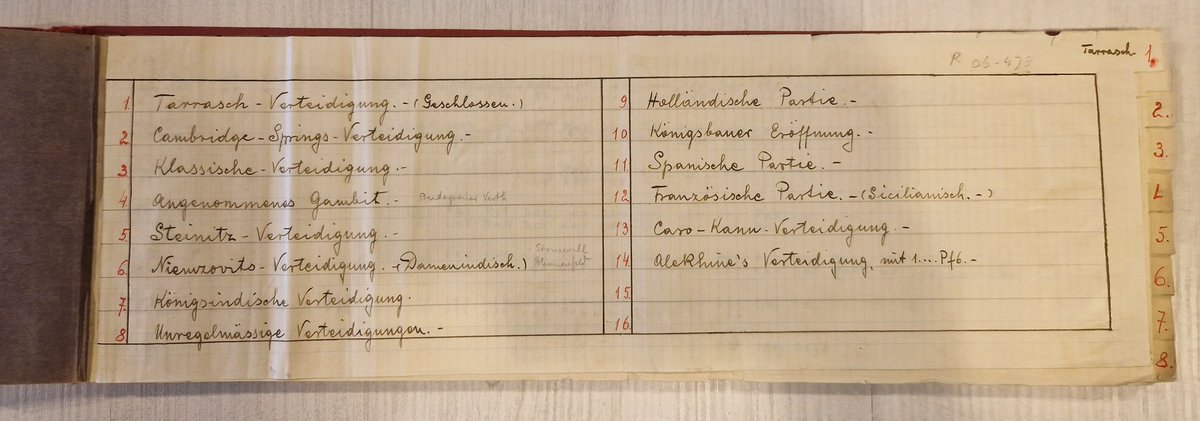 Tarrasch. 1.
R ab-
1. Tarrasch-Verteidigung.-(Geschlossen.)
2. Cambridge-Springs-Verteidigung.-
3. Klassische-Verteidigung.-
4. Angenommenes Gambit.-
5. Steinitz-Verteidigung.-
6. Niemzovits-Verteidigung.-(Damenindisch.)
7. Königsindische Verteidigung.
8. Unregelmässige Verteidigungen.-
9. Holländische Partie.-
10. Königsbauer Eröffnung.-
11. Spanische Partie.-
12. Französische Partie.-(Sicilianisch.-)
13. Caro-Kann-Verteidigung.-
14. Alekhine's Verteidigung, mit 1.... Pf6.-
15.
16.
2.
3.
5.
6.
7.
8.